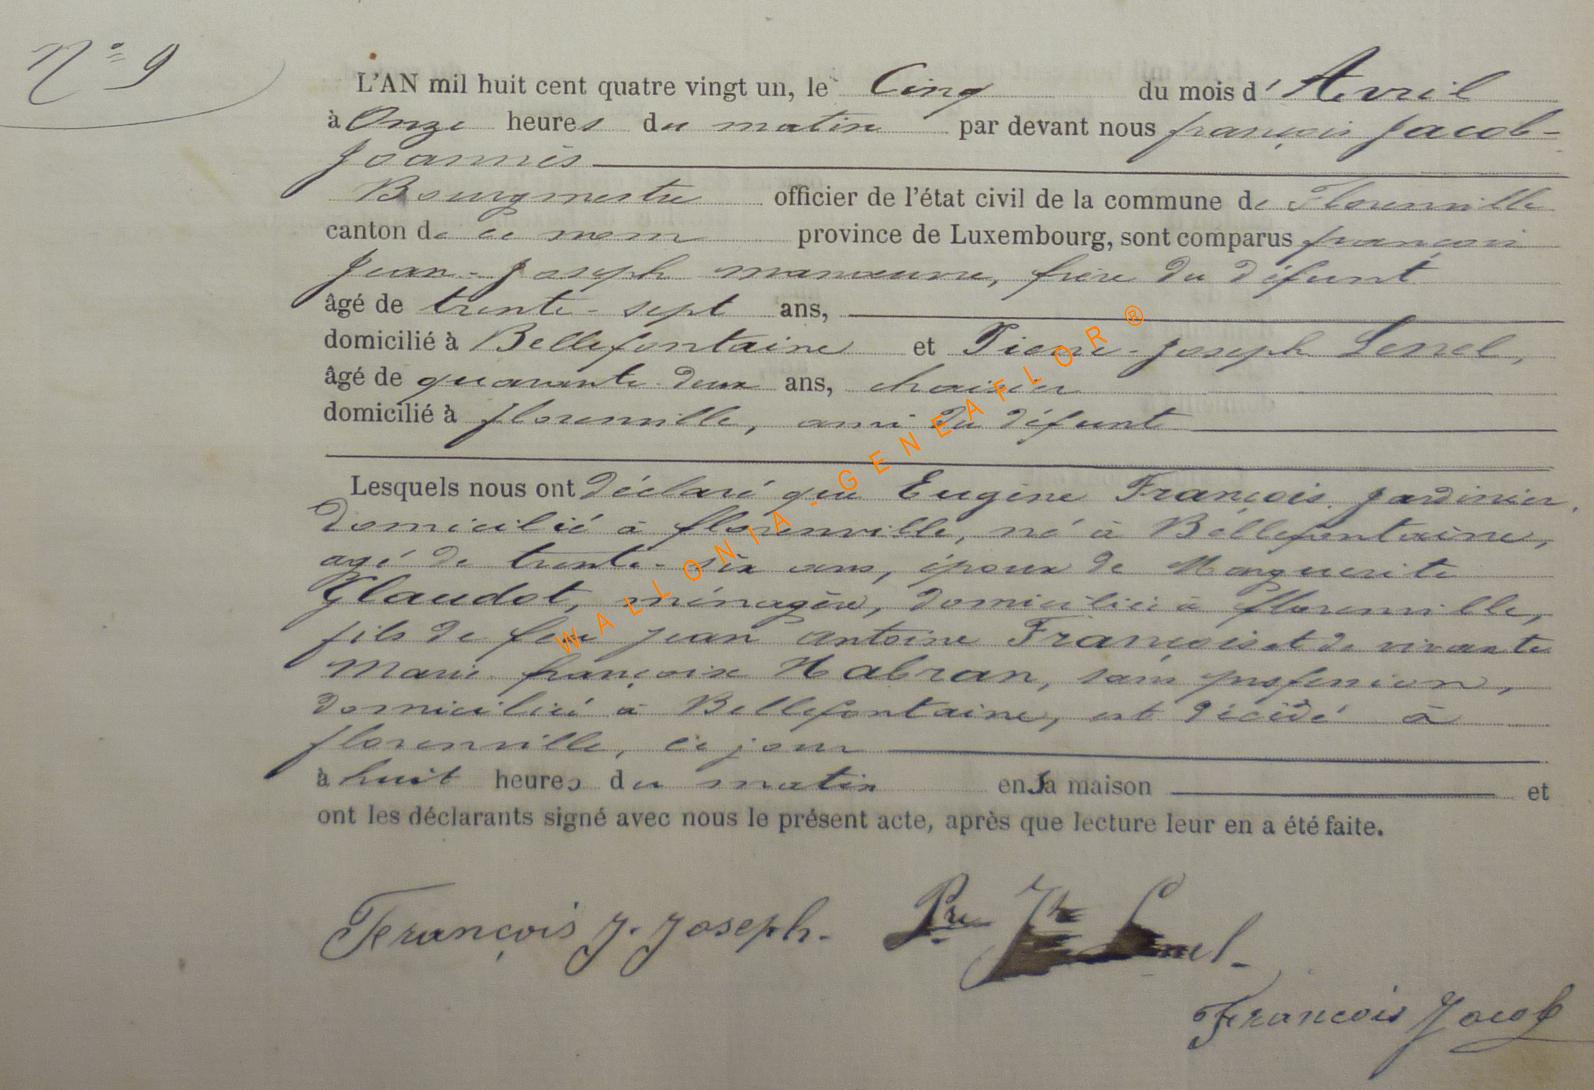 N° 9
L'AN mil huit cent quatre vingt un, le Cinq du mois d'Avril
à Onze heures du matin par devant nous françois Jacob-
Joannès
Bourgmestre officier de l'état civil de la commune de Florenville
canton de ce nom province de Luxembourg, sont comparus françois
Jean-Joseph manœuvre, frère du défunt
âgé de trente-sept ans,
domicilié à Bellefontaine et Pierre-Joseph Lenel,
âgé de quarante deux ans,
domicilié à florenville, ami du défunt
Lesquels nous ont déclaré que Eugène François, jardinier,
domicilié à florenville, né à Bellefontaine,
agé de trente-six ans, époux de Marguerite
Glaudot, ménagère, domiciliée à florenville,
fils de feu jean antoine François et de vivante
Marie françoise Habran, sans profession,
domiciliée à Bellefontaine, est décédé à
florenville, ce jour
à huit heures du matin en sa maison et
ont les déclarants signé avec nous le présent acte, après que lecture leur en a été faite.
François J. Joseph.
Pre Jh Lenel
François Jacob
WALLONIA - GENEAFLOR ®